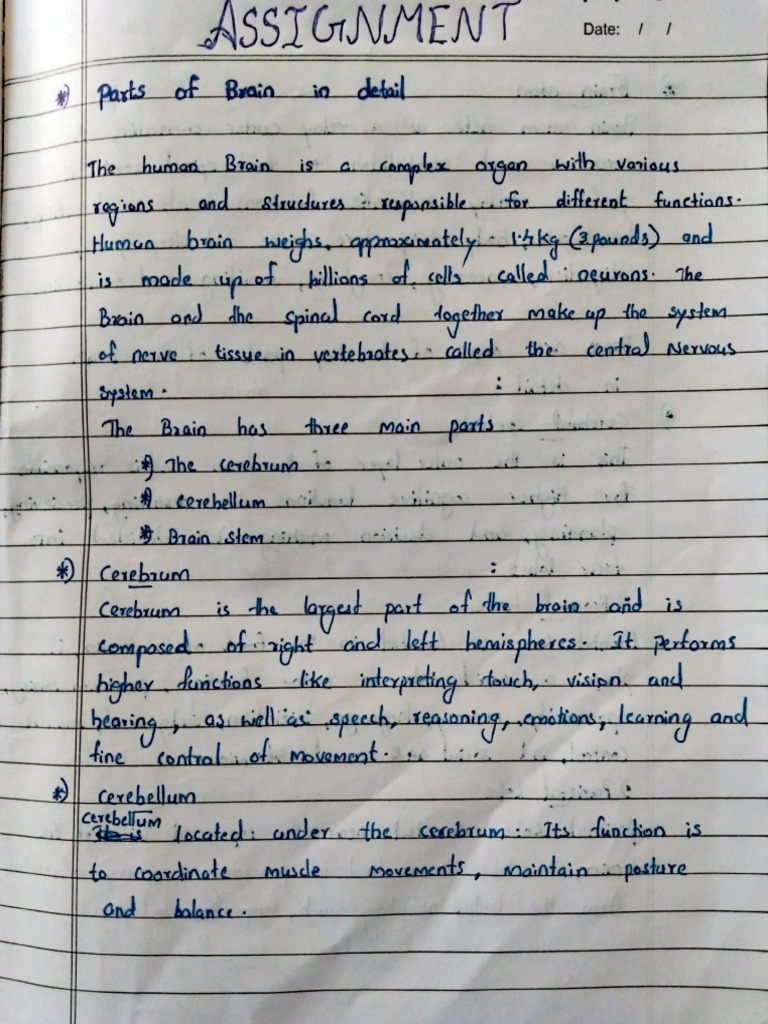 ASSIGNMENT
Date: / /
*) Parts of Brain in detail
The human Brain is a complex organ with various
regions and structures responsible for different functions.
Human brain weighs approximately 1.4kg (3 pounds) and
is made up of billions of cells called neurons. The
Brain and the spinal cord together make up the system
of nerve tissue in vertebrates called the central Nervous
system.
The Brain has three main parts
*) The cerebrum
* cerebellum
* Brain stem
*) Cerebrum
Cerebrum is the largest part of the brain and is
composed of right and left hemispheres. It performs
higher functions like interpreting touch, vision and
hearing, as well as speech, reasoning, emotions, learning and
fine control of movement.
*) cerebellum
cerebellum located under the cerebrum. Its function is
to coordinate muscle movements, maintain posture
and balance.